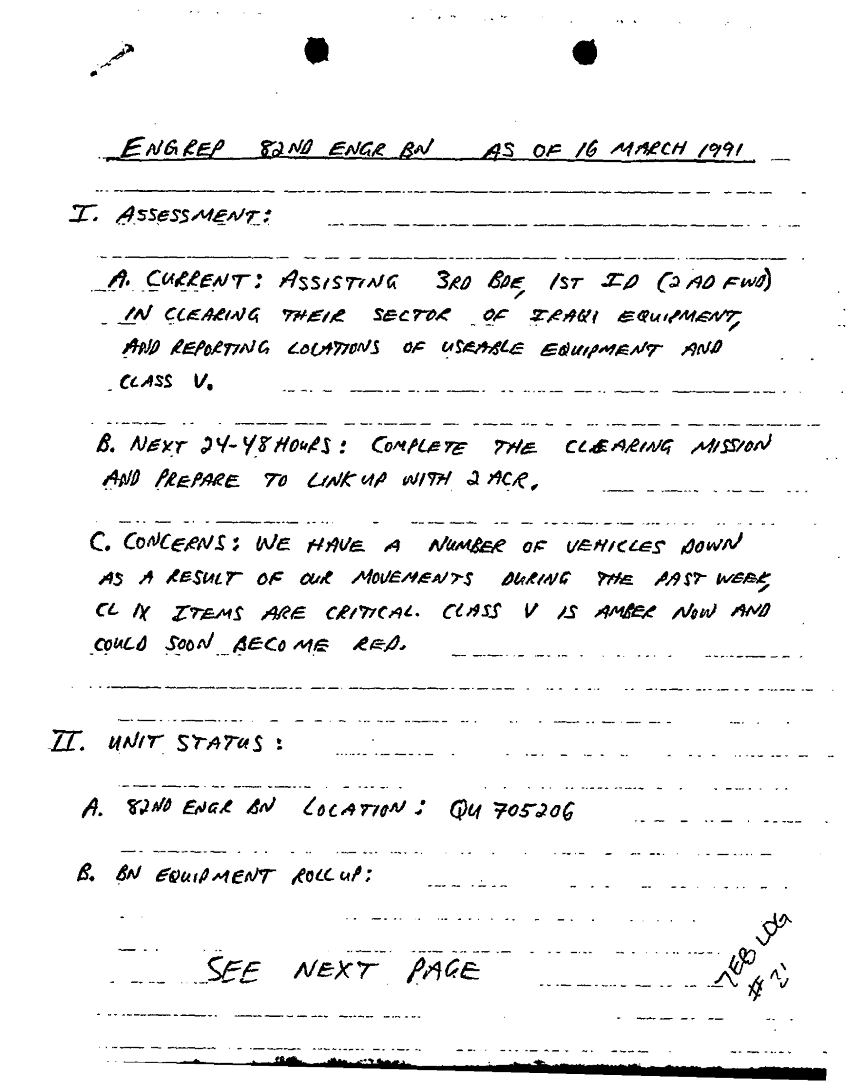 ENGREP 82ND ENGR BN AS OF 16 MARCH 1991
I. ASSESSMENT:
A. CURRENT: ASSISTING 3RD BDE, 1ST ID (2 AD FWD)
IN CLEARING THEIR SECTOR OF IRAQI EQUIPMENT,
AND REPORTING LOCATIONS OF USEABLE EQUIPMENT AND
CLASS V.
B. NEXT 24-48 HOURS: COMPLETE THE CLEARING MISSION
AND PREPARE TO LINK UP WITH 2 ACR.
C. CONCERNS: WE HAVE A NUMBER OF VEHICLES DOWN
AS A RESULT OF OUR MOVEMENTS DURING THE PAST WEEK,
CL IX ITEMS ARE CRITICAL. CLASS V IS AMBER NOW AND
COULD SOON BECOME RED.
II. UNIT STATUS:
A. 82ND ENGR BN LOCATION: QU 705206
B. BN EQUIPMENT ROLL UP:
SEE NEXT PAGE
7EB LOG
#